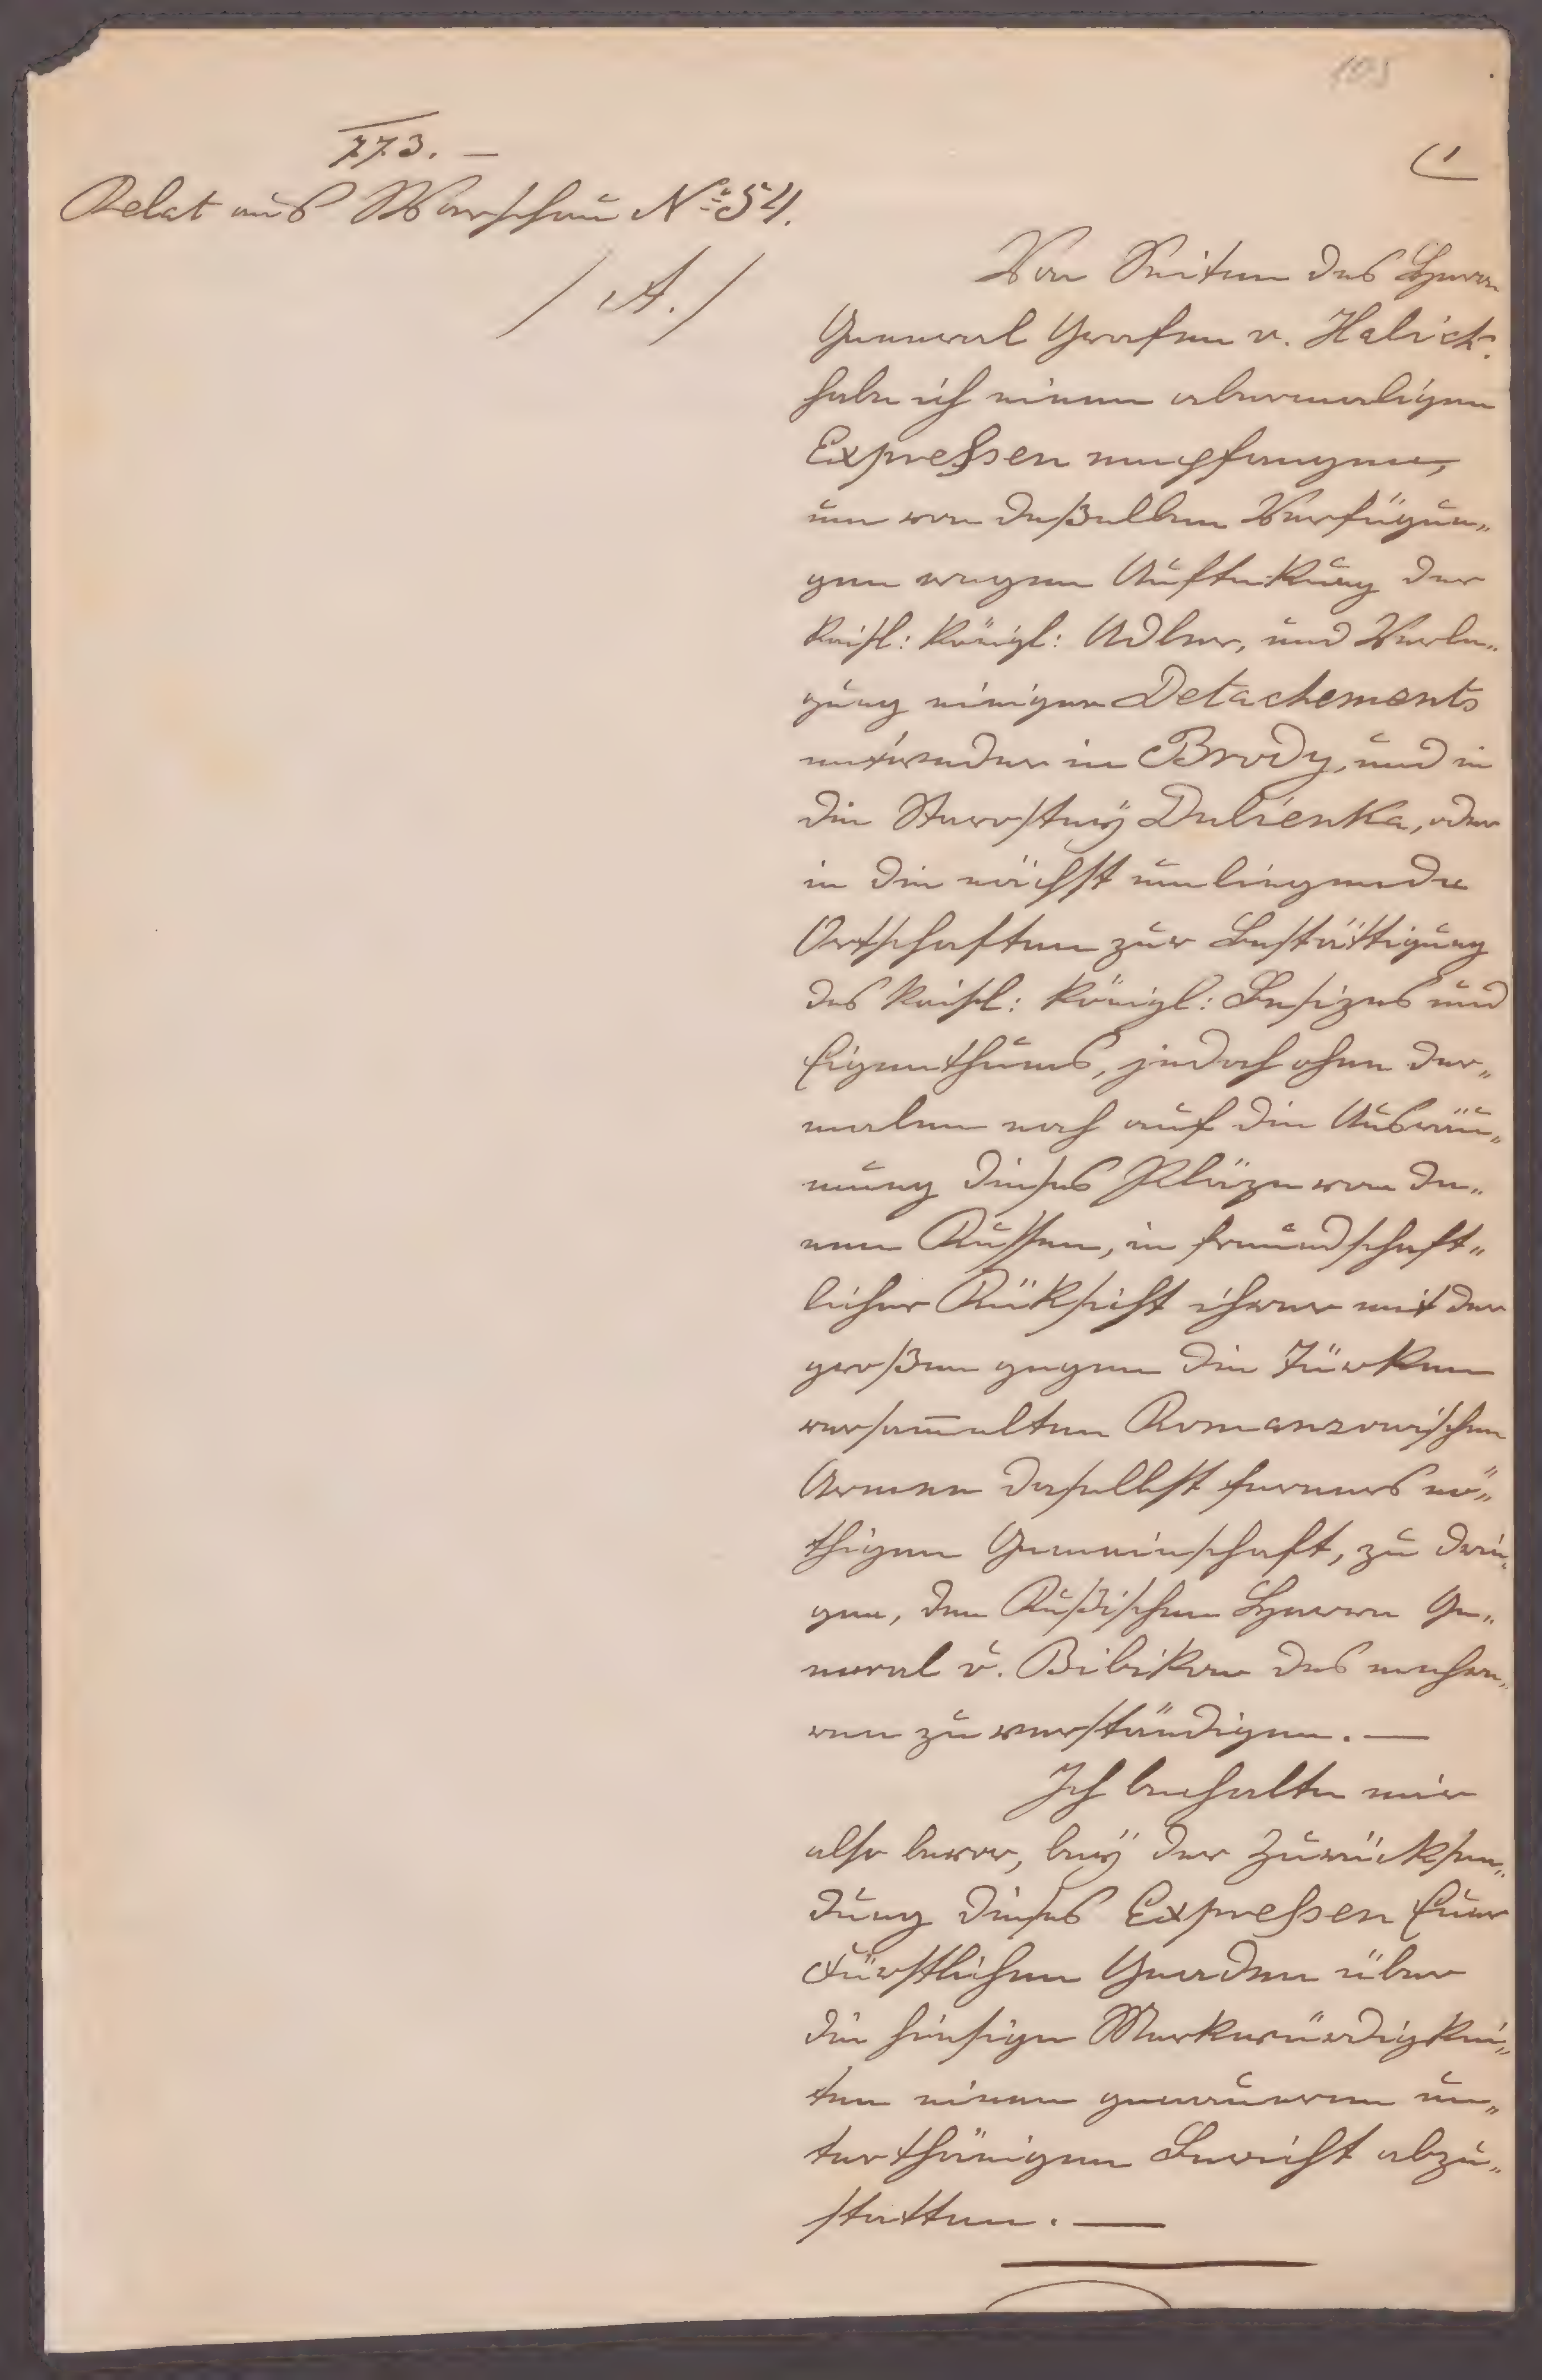 103
773. —
Relat aus Warschau № 54.
/ A. /
Von Seiten des Herrn
General Grafen v. Halick:
habe ich einen abermaligen
Expreßen empfangen,
um von deßelben Verfügun„
gen wegen Aufsteckung der
Kaisl: Königl: Adler, und Verle„
gung einiger Detachements
entweder in Brody, und in
die Starostey Dubienka, oder
in die nächst umliegende
Ortschaften zur Bestättigung
des Kaisl: Königl: Besizes und
Eigenthums, jedoch ohne der„
malen noch auf die Ausräu„
mung dieses Pläze von de„
nen Russen, in freundschaft„
licher Rüksicht ihrer mit der
großen gegen die Türken
versam̄elten Romanzowischen
Armee daselbst ferners nö„
thigen Gemeinschaft, zu drin„
gen, den Rußischen Herrn Ge„
neral v. Bibikow des mehre„
ren zu verständigen. —
Ich behalte mir
also bevor, bey der Zurücksen„
dung dieses Expreßen Euer
Fürstlichen Gnaden über
die hiesige Merkwürdigkei„
ten einen genaueren un„
terthänigen Bericht abzu„
statten. —